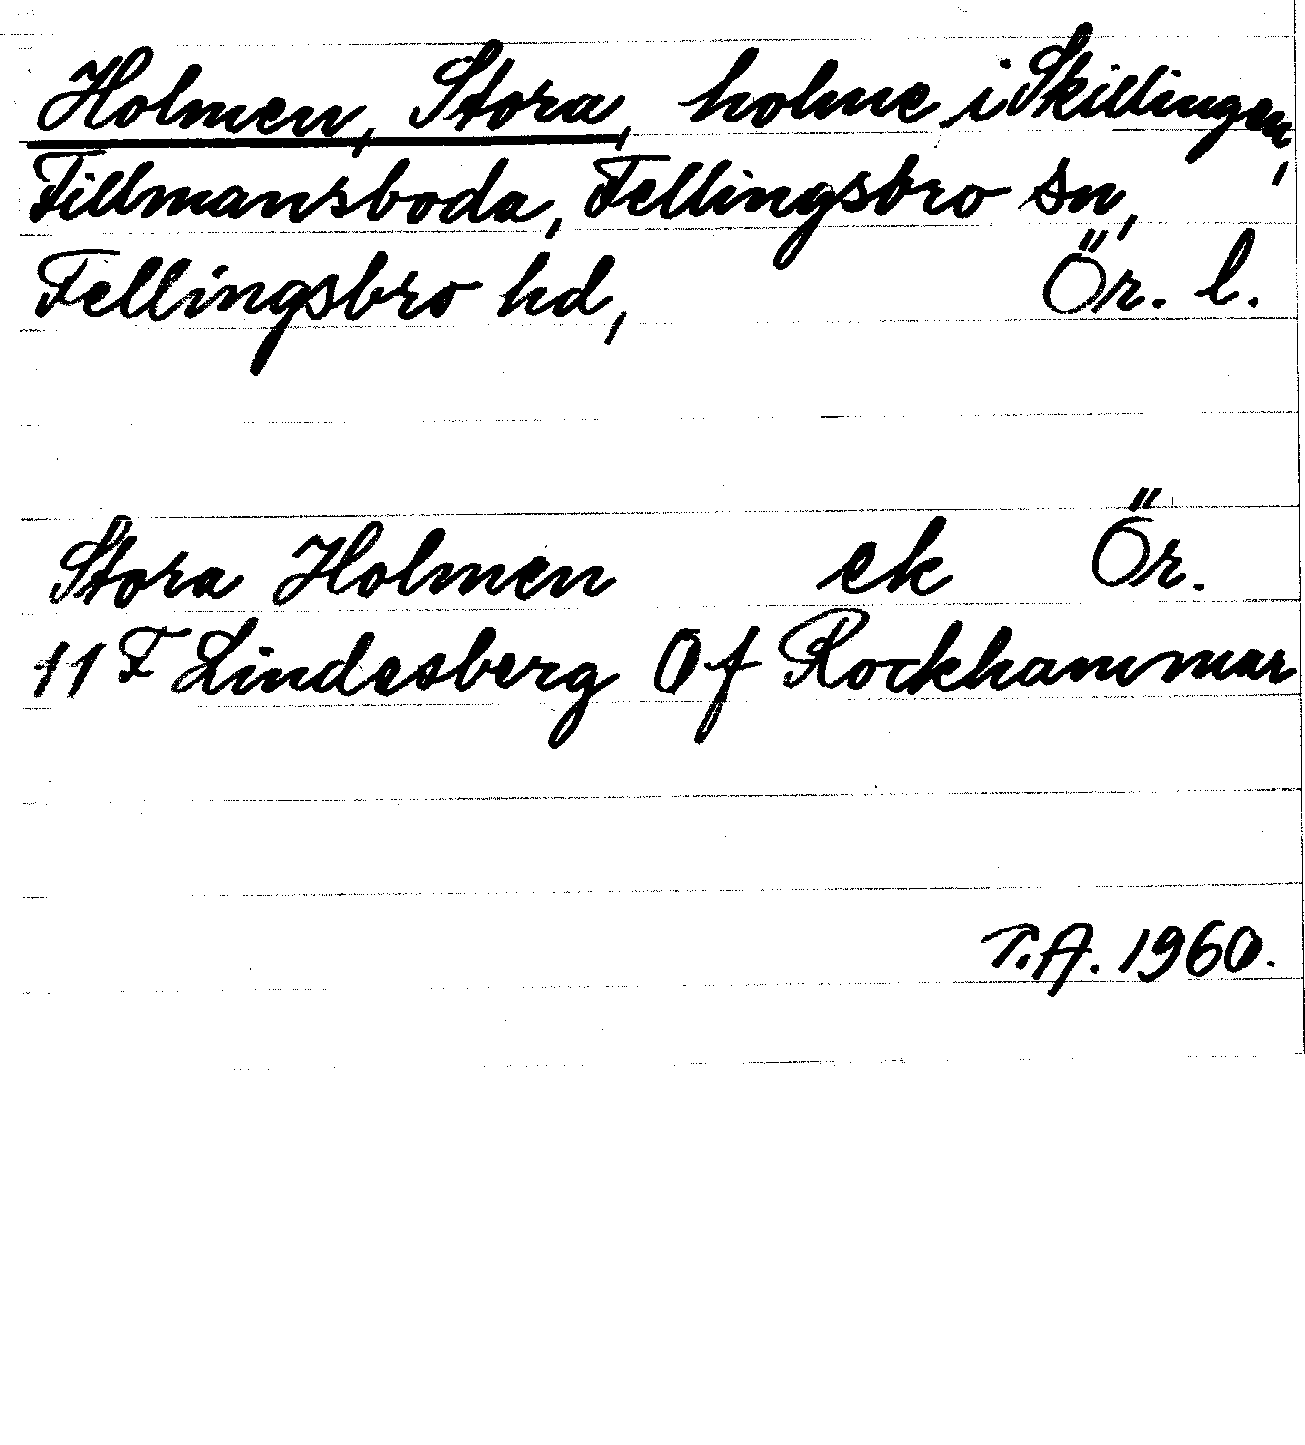 Holmen, Stora, holme i Skillingen,
Tillmansboda, Fellingsbro sn,
Fellingsbro hd, Ör. l.
Stora Holmen ek Ör.
11 F Lindesberg 0 f Rockhammar
T.A. 1960.